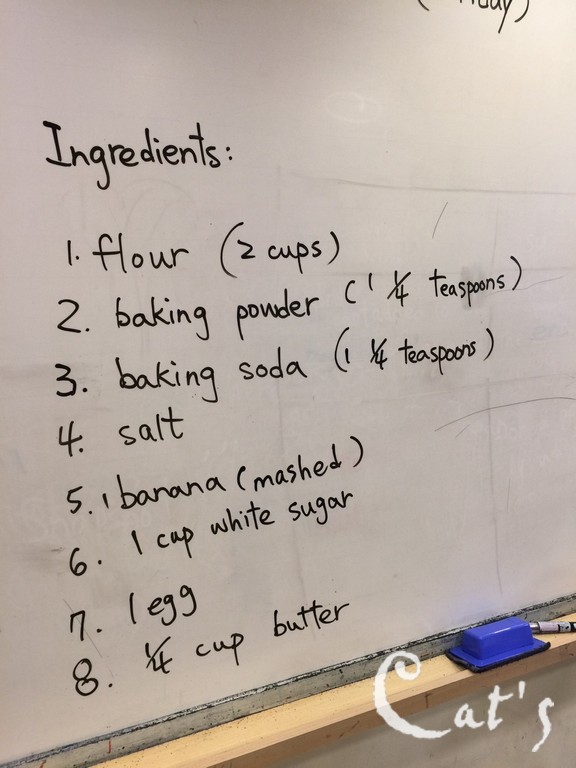 Ingredients:
1. flour (2 cups)
2. baking powder (1 1/4 teaspoons)
3. baking soda (1 1/4 teaspoons)
4. salt
5. 1 banana (mashed)
6. 1 cup white sugar
7. 1 egg
8. 1/4 cup butter
Cat's